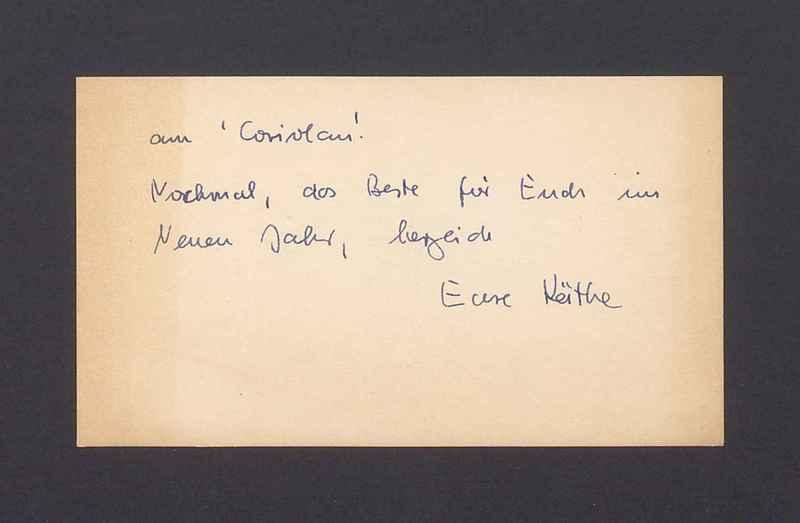 am 'Coriolan'.
Nochmal, das Beste für Euch im
Neuen Jahr, herzlich
Eure Käthe